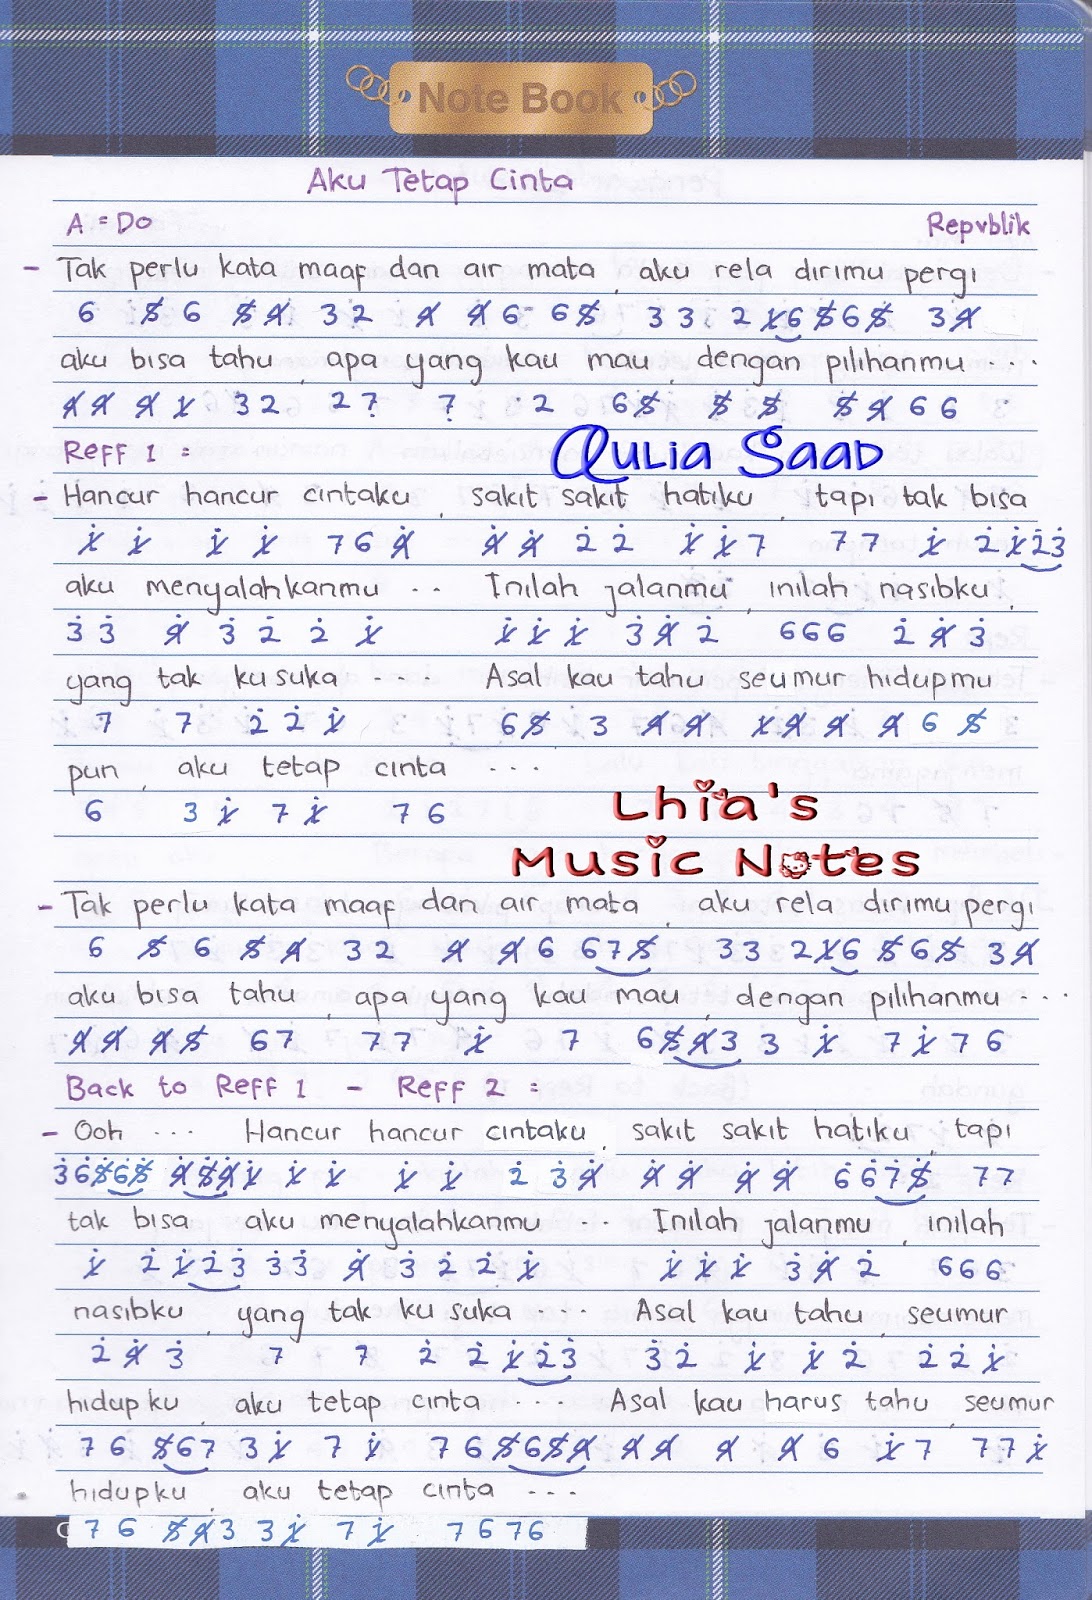 Note Book
Aku Tetap Cinta
A = Do Repvblik
- Tak perlu kata maaf dan air mata, aku rela dirimu pergi
6 5̸ 6 5̸ 4̸ 3 2 4̸ 4̸ 6 6 5̸ 3 3 3 2 1̸ 6 5̸ 6 5̸ 3 4̸
aku bisa tahu, apa yang kau mau, dengan pilihanmu ...
4̸ 4̸ 4̸ 1̸ 3 2 2 7̣ 7̣ 2 6 5̸ 5̸ 5̸ 5̸ 4̸ 6 6
Reff 1 :
Qulia Saad
- Hancur hancur cintaku, sakit sakit hatiku, tapi tak bisa
1̸̇ 1̸̇ 1̸̇ 1̸̇ 7 6 4̸̇ 4̸̇ 4̸̇ 2̇ 2̇ 1̸̇ 1̸̇ 7 7 7 1̸̇ 2̇ 1̸̇ 2̇ 3̇
aku menyalahkanmu .. Inilah jalanmu, inilah nasibku,
3̇ 3̇ 4̸̇ 3̇ 2̇ 2̇ 1̸̇ 1̸̇ 1̸̇ 1̸̇ 3̇ 4̸̇ 2̇ 6 6 6 2̇ 4̸̇ 3̇
yang tak kusuka .... Asal kau tahu seumur hidupmu
7 7 2̇ 2̇ 1̸̇ 6 5̸ 3 4̸ 4̸ 1̸ 4̸ 4̸ 4̸ 6 5̸
pun, aku tetap cinta ...
6 3 1̸̇ 7 1̸̇ 7 6
Lhia's
Music Notes
- Tak perlu kata maaf dan air mata, aku rela dirimu pergi
6 5̸ 6 5̸ 4̸ 3 2 4̸ 4̸ 6 6 7 5̸ 3 3 3 2 1̸ 6 5̸ 6 5̸ 3 4̸
aku bisa tahu, apa yang kau mau, dengan pilihanmu ...
4̸ 4̸ 4̸ 5̸ 6 7 7 7 1̸̇ 7 6 5̸ 4̸ 3 3 1̸̇ 7 1̸̇ 7 6
Back to Reff 1 - Reff 2 :
- Ooh ... Hancur hancur cintaku, sakit sakit hatiku, tapi
3̇ 6̇ 5̸̇ 6̇ 5̸̇ 4̸̇ 5̸̇ 4̸̇ 1̸̇ 1̸̇ 1̸̇ 1̸̇ 1̸̇ 2̇ 3̇ 4̸̇ 4̸̇ 4̸̇ 4̸̇ 4̸̇ 6̇ 6̇ 7̇ 5̸̇ 7 7
tak bisa aku menyalahkanmu ... Inilah jalanmu, inilah
1̸̇ 2̇ 1̸̇ 2̇ 3̇ 3̇ 3̇ 4̸̇ 3̇ 2̇ 2̇ 1̸̇ 1̸̇ 1̸̇ 1̸̇ 3̇ 4̸̇ 2̇ 6 6 6
nasibku, yang tak ku suka .... Asal kau tahu, seumur
2̇ 4̸̇ 3̇ 7 7 2̇ 2̇ 1̸̇ 2̇ 3̇ 3̇ 2̇ 1̸̇ 1̸̇ 2̇ 2̇ 2̇ 1̸̇
hidupku, aku tetap cinta .... Asal kau harus tahu, seumur
7 6 5̸ 6 7 3 1̸̇ 7 1̸̇ 7 6 5̸ 6 5̸ 4̸ 4̸ 4̸ 4̸ 4̸ 6 1̸̇ 7 7 7 1̸̇
hidupku, aku tetap cinta ...
7 6 5̸ 4̸ 3 3 1̸̇ 7 1̸̇ 7 6 7 6